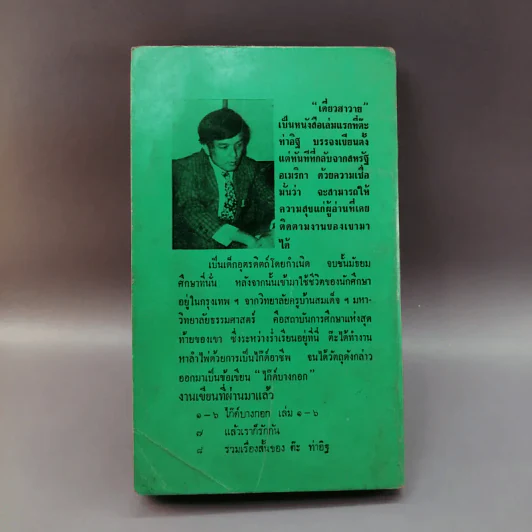 "เดี่ยวสาวาย"
เป็นหนังสือเล่มแรกที่ต๊ะ
ท่าอิฐ บรรจงเขียนตั้ง
แต่ทันทีที่กลับจากสหรัฐ
อเมริกา ด้วยความเชื่อ
มั่นว่า จะสามารถให้
ความสุขแก่ผู้อ่านที่เคย
ติดตามงานของเขามา
ได้
เป็นเด็กอุตรดิตถ์โดยกำเนิด จบชั้นมัธยม
ศึกษาที่นั่น หลังจากนั้นเข้ามาใช้ชีวิตของนักศึกษา
อยู่ในกรุงเทพ ฯ จากวิทยาลัยครูบ้านสมเด็จ ฯ มหา-
วิทยาลัยธรรมศาสตร์ คือสถาบันการศึกษาแห่งสุด
ท้ายของเขา ซึ่งระหว่างร่ำเรียนอยู่ที่นี่ ต๊ะได้ทำงาน
หาลำไพ่ด้วยการเป็นไก๊ด์อาชีพ จนได้วัตถุดังกล่าว
ออกมาเป็นข้อเขียน "ไก๊ด์บางกอก"
งานเขียนที่ผ่านมาแล้ว
๑-๖ ไก๊ด์บางกอก เล่ม ๑-๖
๗ แล้วเราก็รักกัน
๘ รวมเรื่องสั้นของ ต๊ะ ท่าอิฐ